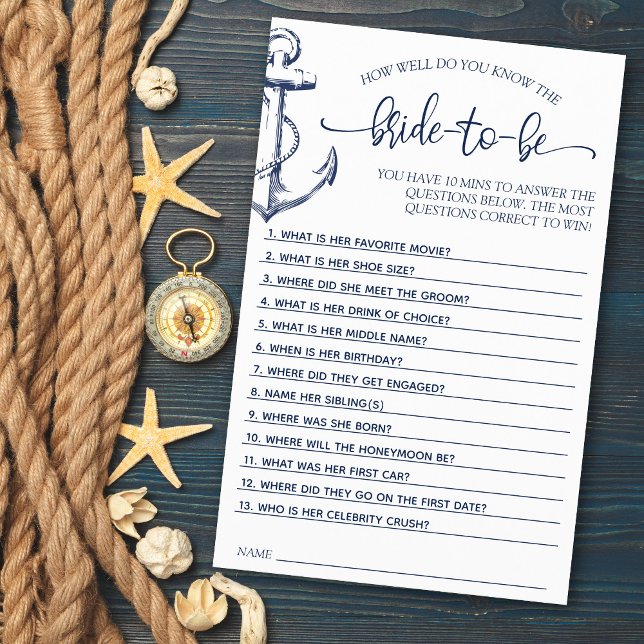 HOW WELL DO YOU KNOW THE
bride-to-be
YOU HAVE 10 MINS TO ANSWER THE
QUESTIONS BELOW. THE MOST
QUESTIONS CORRECT TO WIN!
1. WHAT IS HER FAVORITE MOVIE?
2. WHAT IS HER SHOE SIZE?
3. WHERE DID SHE MEET THE GROOM?
4. WHAT IS HER DRINK OF CHOICE?
5. WHAT IS HER MIDDLE NAME?
6. WHEN IS HER BIRTHDAY?
7. WHERE DID THEY GET ENGAGED?
8. NAME HER SIBLING(S)
9. WHERE WAS SHE BORN?
10. WHERE WILL THE HONEYMOON BE?
11. WHAT WAS HER FIRST CAR?
12. WHERE DID THEY GO ON THE FIRST DATE?
13. WHO IS HER CELEBRITY CRUSH?
NAME